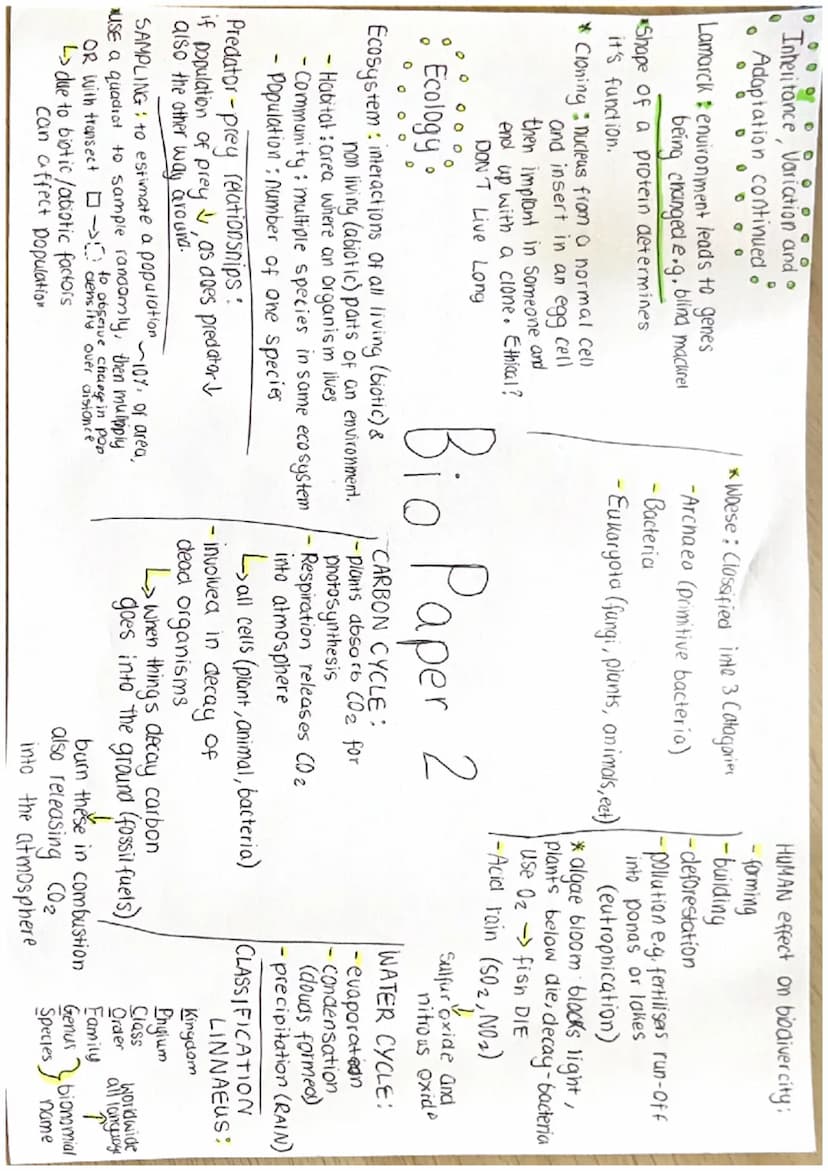 Inheritance, Variation and
Adaptation continued
Lamarck : environment leads to genes
being changed e.g. blind mackrel
*Shape of a protein determines
it's function.
* Cloning : nucleus from a normal cell
and insert in an egg cell
then implant in someone and
end up with a clone. Ethical?
DON'T Live Long
Ecology
Ecosystem : interactions of all living (biotic) &
non living (abiotic) parts of an environment.
- Habitat : area where an organism lives
- Community : multiple species in same ecosystem
- Population : number of one species
Predator - prey relationships :
if population of prey ↓, as does predator ↓
also the other way around.
SAMPLING : to estimate a population ~10% of area,
*USE a quadrat to sample randomly, then multiply
OR with transect □ → to observe change in pop
density over distance
↳ due to biotic/abiotic factors
can affect population
Bio Paper 2
* Woese : Classified into 3 Catagories
- Archaea (primitive bacteria)
- Bacteria
- Eukaryota (fungi, plants, animals, ect)
CARBON CYCLE :
- plants absorb CO₂ for
photosynthesis
- Respiration releases CO₂
into atmosphere
↳ all cells (plant, animal, bacteria)
- involved in decay of
dead organisms
↳ when things decay carbon
goes into the ground (fossil fuels)
↓
burn these in combustion
also releasing CO₂
into the atmosphere
HUMAN effect on biodivercity :
- farming
- building
- deforestation
- pollution e.g. fertilisers run-off
into ponds or lakes
(eutrophication)
* algae bloom blocks light,
plants below die, decay - bacteria
use O₂ → fish DIE
- Acid rain (SO₂, NO₂)
↓
Sulfur oxide and
nitrous oxide
WATER CYCLE :
- evaporation
- condensation
(clouds formed)
- precipitation (RAIN)
CLASSIFICATION
LINNAEUS :
Kingdom
Phylum
Class
Order
Family
Genus
Species
} bionomial
name
↓
worldwide
all language